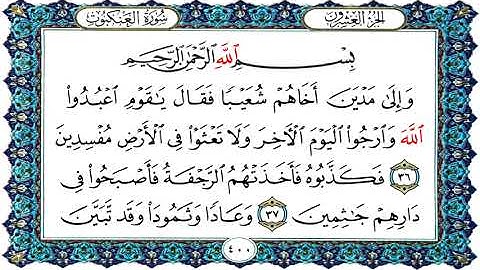 الجزء العشرون
سورة العنكبوت
بِسْمِ اللَّهِ الرَّحْمَٰنِ الرَّحِيمِ
وَإِلَىٰ مَدْيَنَ أَخَاهُمْ شُعَيْبًا فَقَالَ يَٰقَوْمِ ٱعْبُدُوا۟
ٱللَّهَ وَٱرْجُوا۟ ٱلْيَوْمَ ٱلْأَخِرَ وَلَا تَعْثَوْا۟ فِى ٱلْأَرْضِ مُفْسِدِينَ
٣٦ فَكَذَّبُوهُ فَأَخَذَتْهُمُ ٱلرَّجْفَةُ فَأَصْبَحُوا۟ فِى
دَارِهِمْ جَٰثِمِينَ ٣٧ وَعَادًا وَثَمُودَا۟ وَقَد تَّبَيَّنَ
٤٠٠